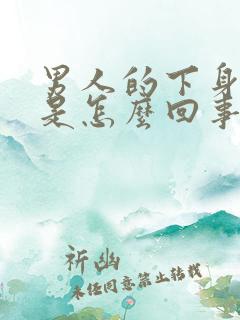 男人的下身
是怎麼回事
祈幽
未经同意禁止转载